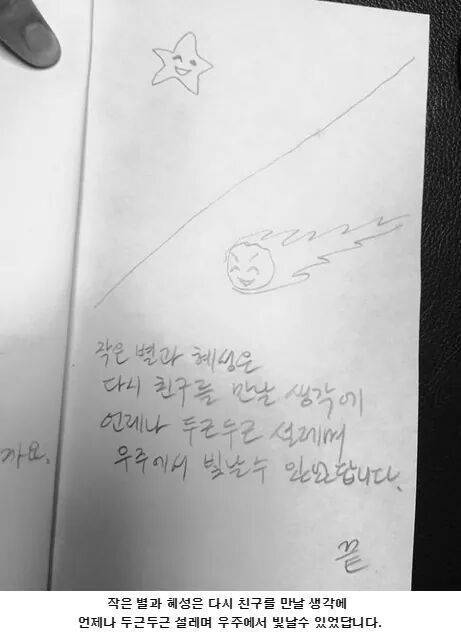 까요.
작은 별과 혜성은
다시 친구를 만날 생각에
언제나 두근두근 설레며
우주에서 빛날수 있었답니다.
끝
작은 별과 혜성은 다시 친구를 만날 생각에
언제나 두근두근 설레며 우주에서 빛날수 있었답니다.